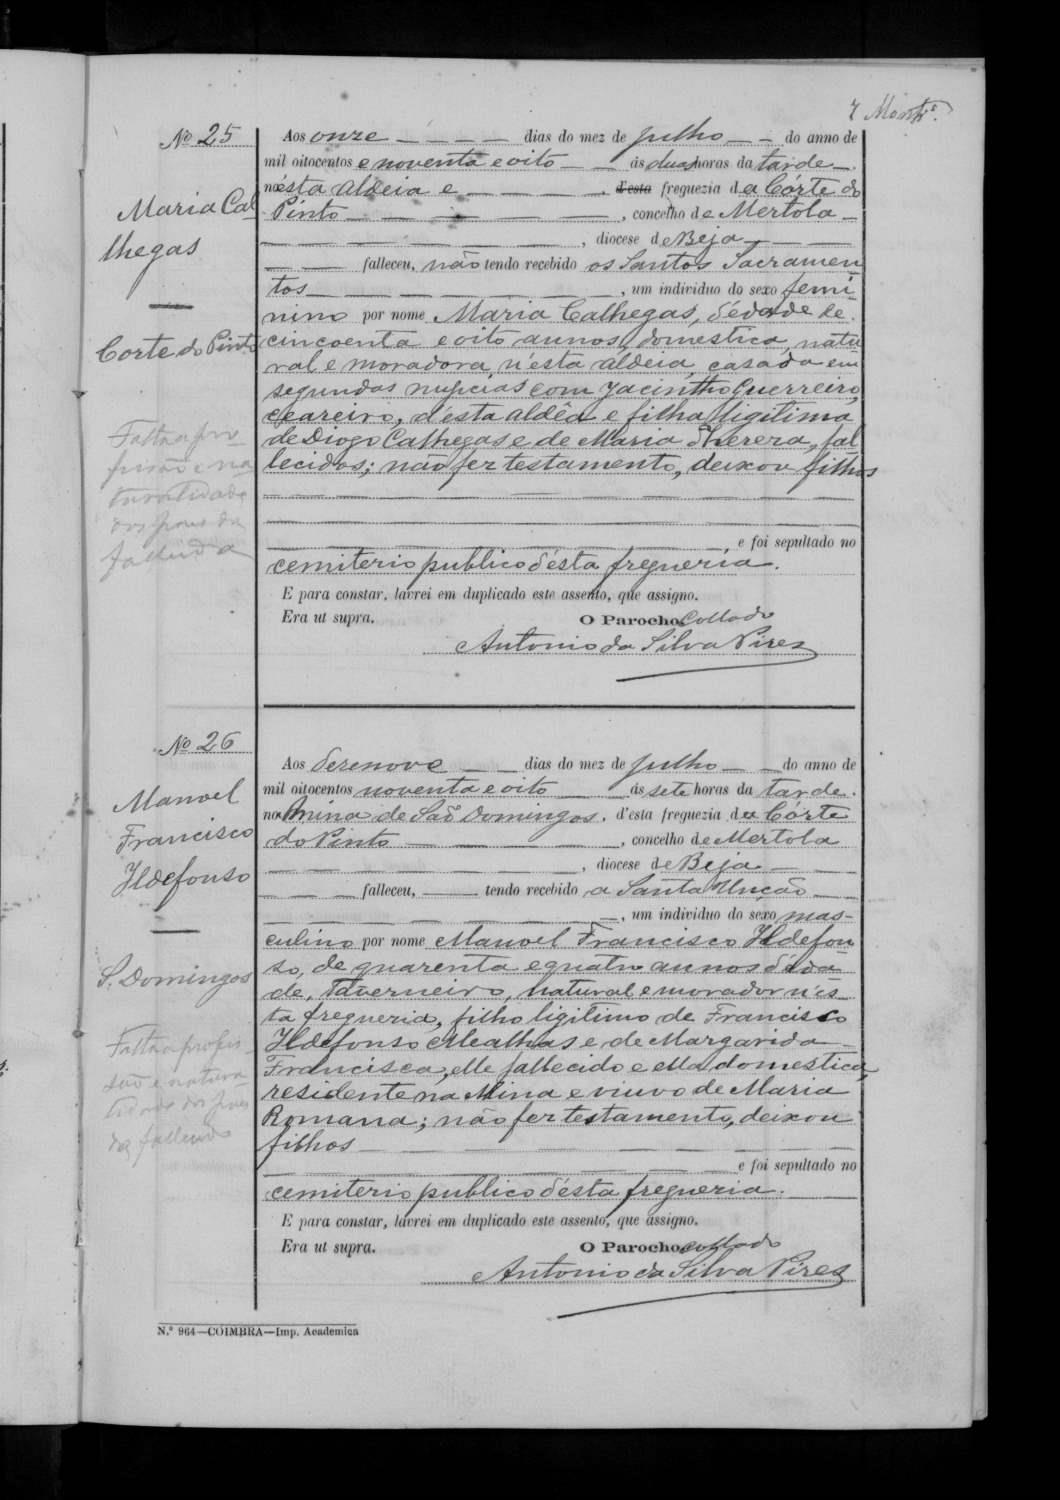 7 Montr.º
Nº 25
Maria Cal
lhegas
Corte do Pinto
Falta a pro
fissão e na
turalidade
dos paes da
fallecida
Aos onze dias do mez de julho do anno de
mil oitocentos e noventa e oito ás duas horas da tarde
n'ésta aldeia e d'esta freguezia da Córte do
Pinto, concelho de Mertola
, diocese de Beja
falleceu, não tendo recebido os Santos Sacramen
tos, um individuo do sexo femi-
nino por nome Maria Calhegas, d'édade de
cincoenta e oito annos, domestica, natu
ral e moradora, n'esta aldeia, casada em
segundas nupcias com Jacintho Guerreiro,
ceareiro, d'ésta aldêa e filha ligitima
de Diogo Calhegas e de Maria Therera, fal
lecidos; não fez testamento, deixou filhos
e foi sepultado no
cemiterio publico d'ésta fregueria.
E para constar, lavrei em duplicado este assento, que assigno.
Era ut supra.
O Parocho Collado
Antonio da Silva Pires
Nº 26
Manoel
Francisco
Ildefonso
S. Domingos
Falta a profis-
são e natura-
lidade dos paes
do fallecido
Aos derenove dias do mez de julho do anno de
mil oitocentos noventa e oito ás sete horas da tarde.
na Mina de São Domingos, d'esta freguezia da Córte
do Pinto, concelho de Mertola
, diocese de Beja
falleceu, tendo recebido a Santa Unção
, um individuo do sexo mas-
culino por nome Manoel Francisco Ildefon
so, de quarenta e quatro annos d'éda-
de, Taverneiro, natural e morador n'és-
ta fregueria, filho ligitimo de Francisco
Ildefonso Mealhas e de Margarida
Francisca, elle fallecido e ella domestica,
residente na Mina e viuvo de Maria
Romana; não fez testamento, deixou
filhos
e foi sepultado no
cemiterio publico d'ésta fregueria.
E para constar, lavrei em duplicado este assento, que assigno.
Era ut supra.
O Parocho Collado
Antonio da Silva Pires
N.º 964—COIMBRA—Imp. Academica